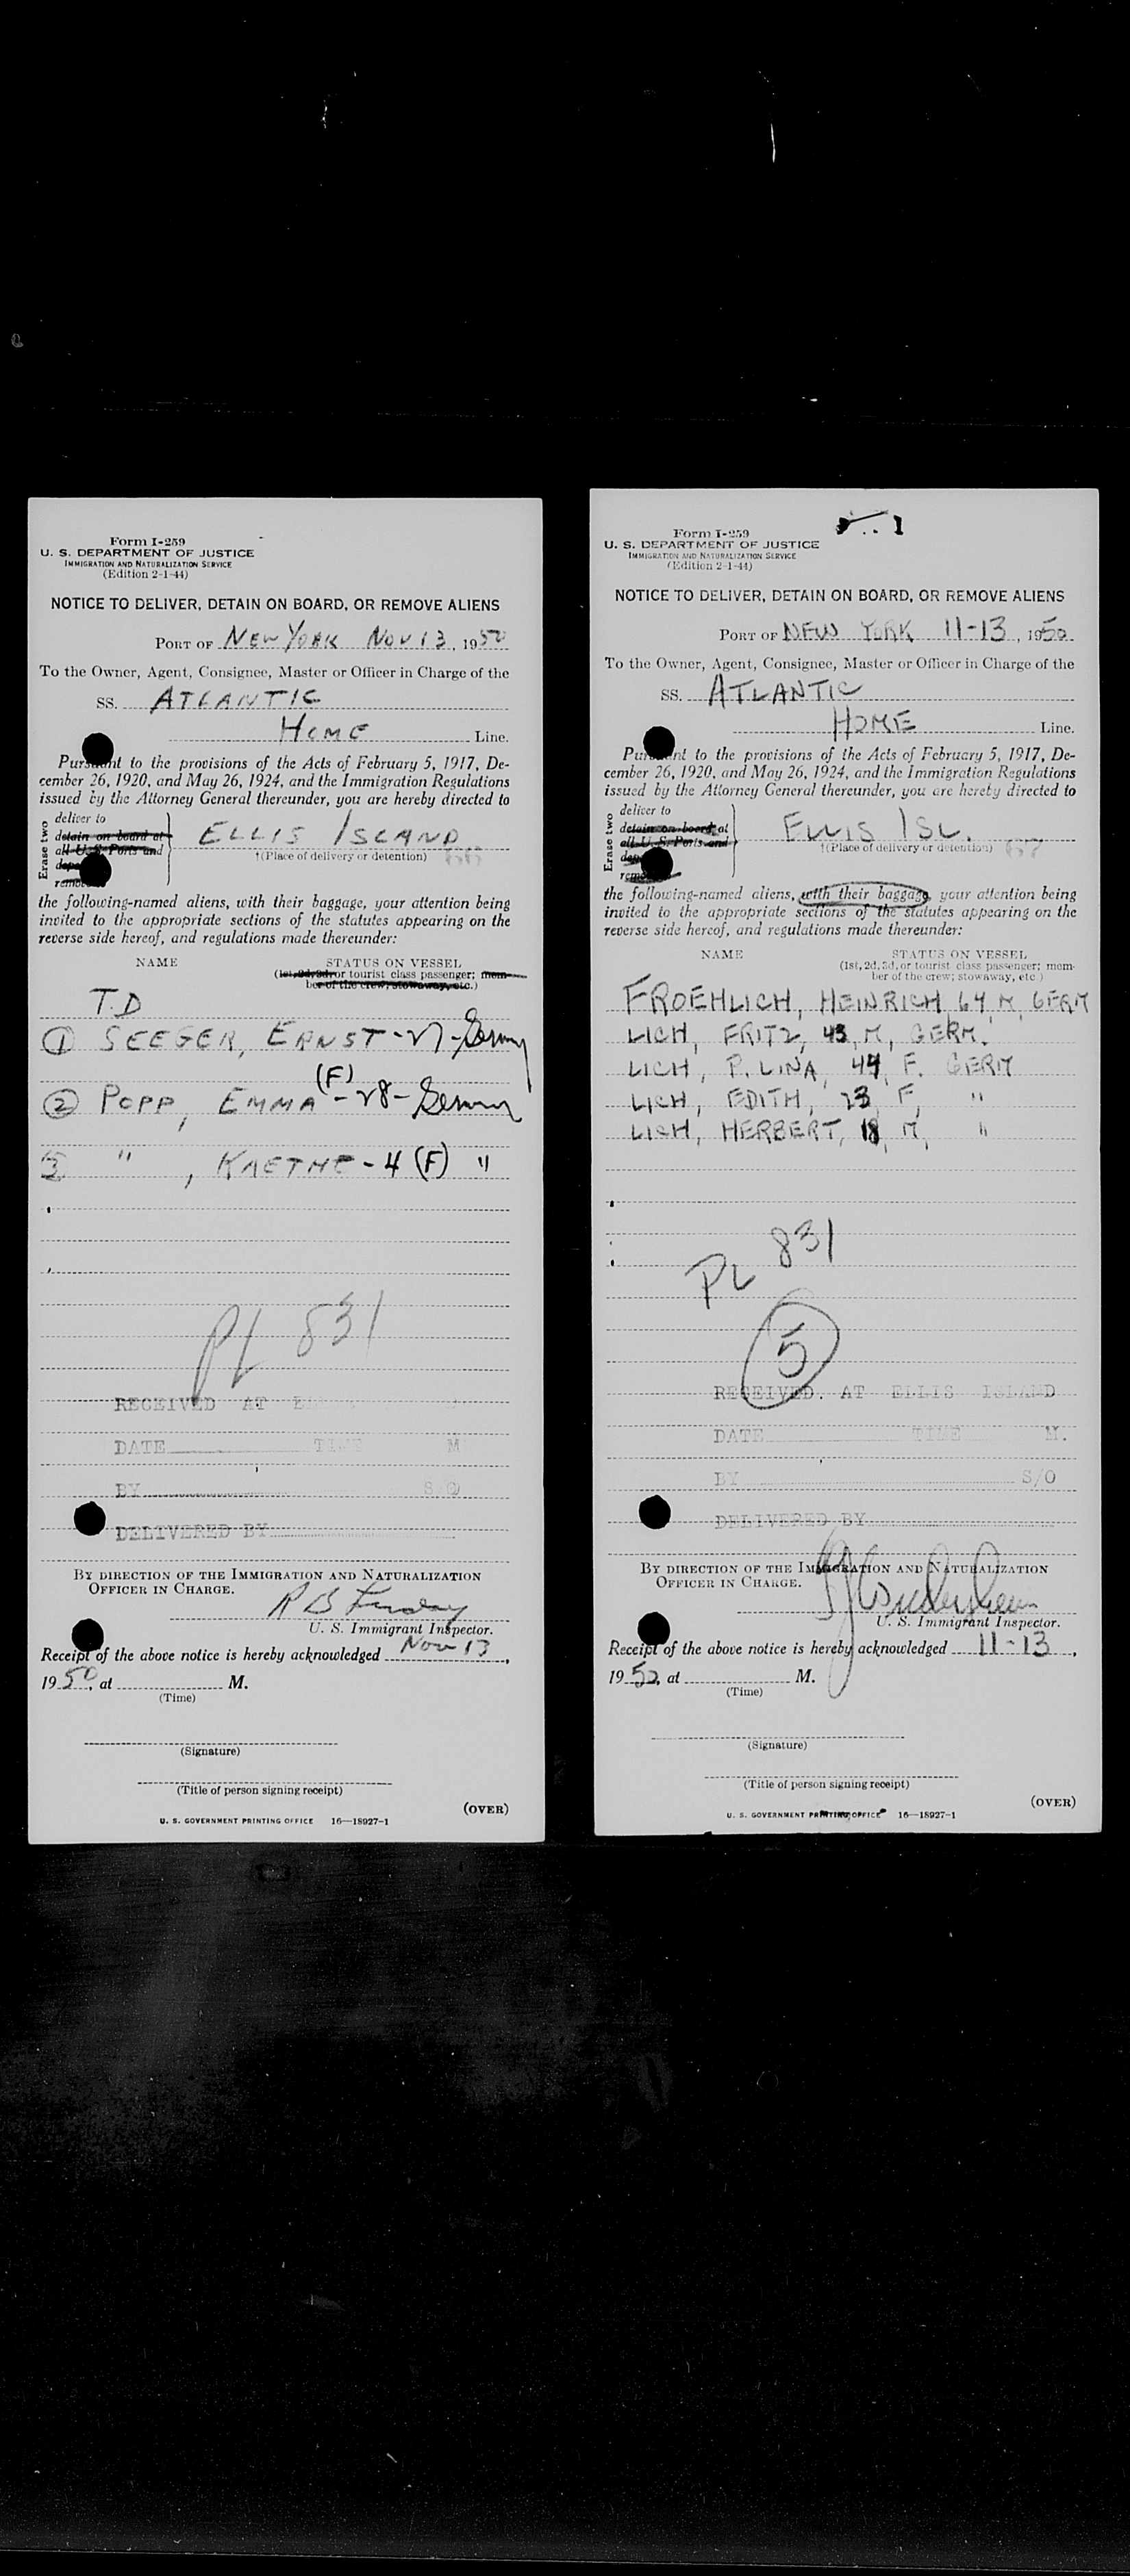 Form I-259
U. S. DEPARTMENT OF JUSTICE
IMMIGRATION AND NATURALIZATION SERVICE
(Edition 2-1-44)
NOTICE TO DELIVER, DETAIN ON BOARD, OR REMOVE ALIENS
PORT OF NEW YORK NOV 13, 1950
To the Owner, Agent, Consignee, Master or Officer in Charge of the
SS. ATLANTIC
HOME Line.
Pursuant to the provisions of the Acts of February 5, 1917, De-
cember 26, 1920, and May 26, 1924, and the Immigration Regulations
issued by the Attorney General thereunder, you are hereby directed to
Erase two
deliver to
detain on board at
all U. S. Ports and
ELLIS ISLAND
†(Place of delivery or detention)
the following-named aliens, with their baggage, your attention being
invited to the appropriate sections of the statutes appearing on the
reverse side hereof, and regulations made thereunder:
NAME STATUS ON VESSEL
(1st, 2d, 3d, or tourist class passenger; mem-
ber of the crew; stowaway, etc.)
T.D
① SEEGER, ERNST - 27 - Germny
② POPP, EMMA (F) - 28 - Germny
3 " , KAETHE - 4 (F) "
PL 831
RECEIVED AT
DATE TIME M
BY S/O
DELIVERED BY
BY DIRECTION OF THE IMMIGRATION AND NATURALIZATION
OFFICER IN CHARGE.
U. S. Immigrant Inspector.
Receipt of the above notice is hereby acknowledged Nov 13,
1950, at M.
(Time)
(Signature)
(Title of person signing receipt)
(OVER)
U. S. GOVERNMENT PRINTING OFFICE 16—18927-1
Form I-259
U. S. DEPARTMENT OF JUSTICE
IMMIGRATION AND NATURALIZATION SERVICE
(Edition 2-1-44)
NOTICE TO DELIVER, DETAIN ON BOARD, OR REMOVE ALIENS
PORT OF NEW YORK 11-13, 1950
To the Owner, Agent, Consignee, Master or Officer in Charge of the
SS. ATLANTIC
HOME Line.
Pursuant to the provisions of the Acts of February 5, 1917, De-
cember 26, 1920, and May 26, 1924, and the Immigration Regulations
issued by the Attorney General thereunder, you are hereby directed to
Erase two
deliver to
detain on board at
all U. S. Ports and
ELLIS ISL.
†(Place of delivery or detention) 67
the following-named aliens, with their baggage, your attention being
invited to the appropriate sections of the statutes appearing on the
reverse side hereof, and regulations made thereunder:
NAME STATUS ON VESSEL
(1st, 2d, 3d, or tourist class passenger; mem-
ber of the crew; stowaway, etc.)
FROEHLICH, HEINRICH, 64, M, GERM
LICH, FRITZ, 43, M, GERM.
LICH, P. LINA, 44, F. GERM
LICH, EDITH, 23, F, "
LICH, HERBERT, 18, M, "
PL 831
5
RECEIVED AT ELLIS ISLAND
DATE TIME M.
BY S/O
DELIVERED BY
BY DIRECTION OF THE IMMIGRATION AND NATURALIZATION
OFFICER IN CHARGE.
U. S. Immigrant Inspector.
Receipt of the above notice is hereby acknowledged 11-13,
1950, at M.
(Time)
(Signature)
(Title of person signing receipt)
(OVER)
U. S. GOVERNMENT PRINTING OFFICE 16—18927-1